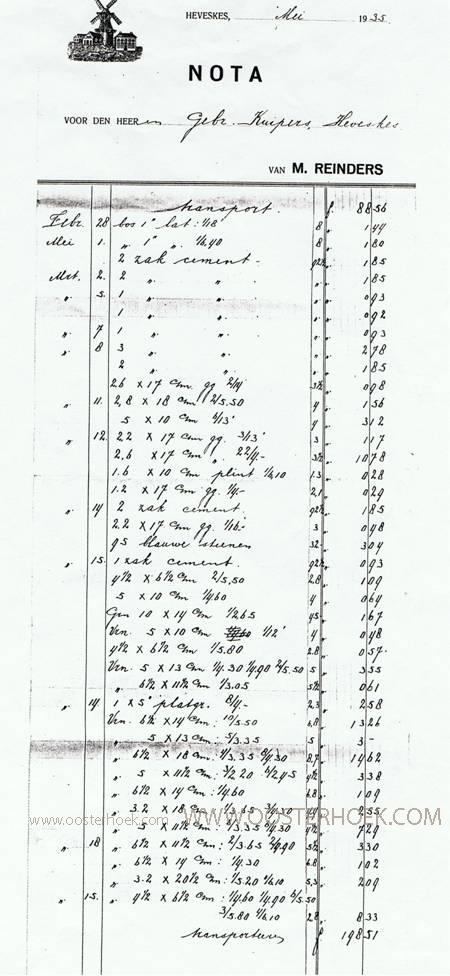 HEVESKES, Mei 1935
NOTA
VOOR DEN HEERen Gebr. Kuipers, Heveskes
VAN M. REINDERS
transport. f. 8856
Febr. 28 bos 1" lat: 1/18' 8 " 144
Mei 1. " 1" " . 1/4,40 8 " 180
2 zak cement - 92½ " 185
Mrt. 2. 2 " " . " " 185
" 5. 1 " " . " " 093
1 " " . " " 092
" 7 1 " " . " " 093
" 8 3 " " . " " 278
2 " " . " " 185
2.6 x 17 cm gg 2/14' 3½ " 098
" 11. 2,8 x 18 cm 2/5.50 4 " 156
5 x 10 cm 6/13' 4 " 312
" 12. 2.2 x 17 cm gg. 3/13' 3 " 117
2.6 x 17 cm " 22/4.- 3½ " 1078
1.6 x 10 cm plint 1/4,10 1.3 " 028
1.2 x 17 cm gg. 1/4.- 2.1 " 029
" 14 2 zak cement. 92½ " 185
2.2 x 17 cm gg. 1/16.' 3 " 048
95 blauwe steenen 32 " 304
" 15. 1 zak cement. 92½ " 093
4½ x 6½ cm 2/5,50 2.8 " 109
5 x 10 cm 1/4,60 4 " 064
Gen 10 x 14 cm 1/2.65 " 167
Ven. 5 x 10 cm 1/12' 4 " 048
4½ x 6½ cm 1/5.80 2.8 " 057
Ven. 5 x 13 cm 1/4.30 1/4,90 2/5.50 5 " 355
" 6½ x 11½ cm 1/3.05 5½ " 061
" 14. 1 x 5" platgr. 8/4.- 2.3 " 258
Ven. 6½ x 14 cm: 10/5.50 6.8 " 1326
" 5 x 13 cm: 5/3.35 5 " 3-
" 6½ x 18 cm: 4/3.35 8/4,30 8.7 " 1462
" 5 x 11½ cm: 3/2.20 6/2,45 4½ " 338
" 6½ x 14 cm: 1/4.60 6.8 " 109
" 3.2 x 18 cm: 1/3.65 3/4,30 " 255
" 5 x 11½ cm: 3/3.35 4/4.30 4½ " 729
" 18 " 6½ x 11½ cm: 2/3.65 2/4,90 5½ " 330
" 6½ x 14 cm: 1/4.30 6.8 " 102
" 3.2 x 20½ cm: 1/5.20 1/4,10 5,3 " 209
" 15. " 4½ x 6½ cm: 1/4,60 1/4,90 6/5.50
3/5.80 1/4,10 2.8 " 833
transporteren f. 19851
www.oosterhoek.com WWW.OOSTERHOEK.COM